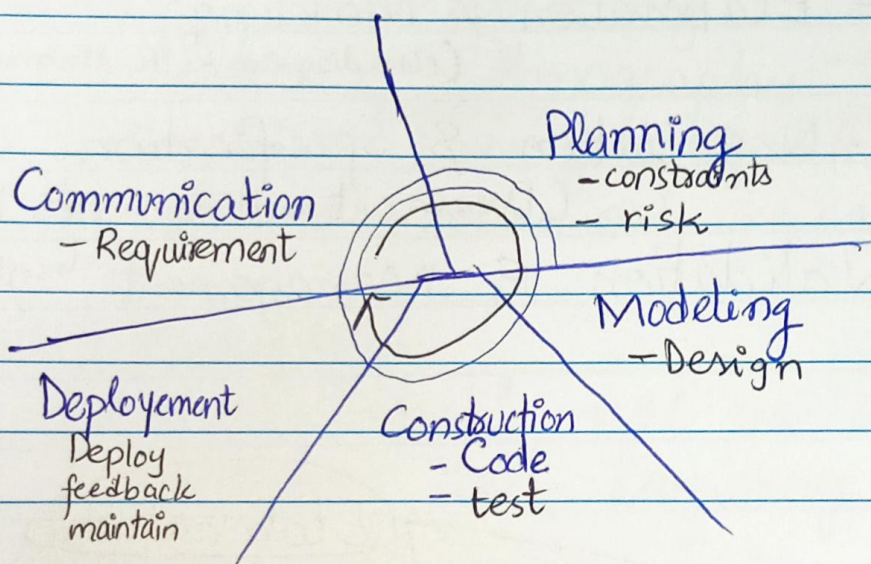 Communication
- Requirement
Planning
- constraints
- risk
Modeling
- Design
Construction
- Code
- test
Deployement
Deploy
feedback
maintain